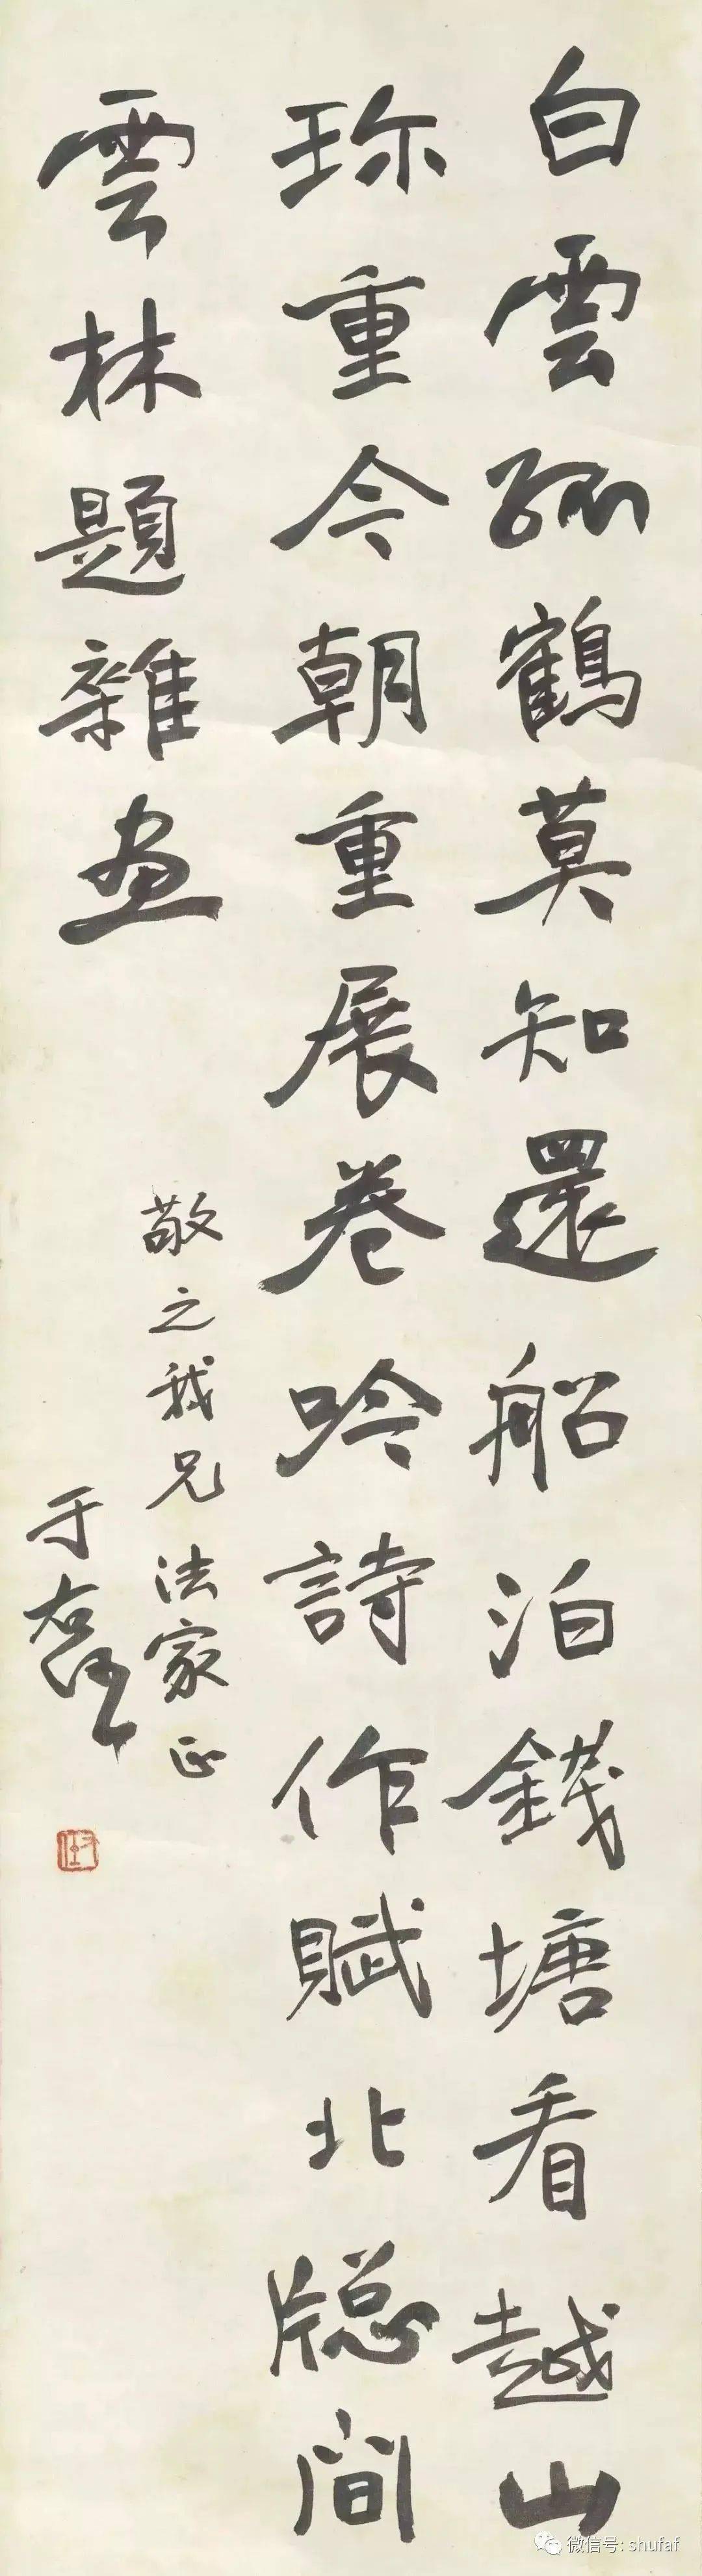 白雲孤鶴莫知還船泊錢塘看越山
珎重今朝重展卷吟詩作賦北牕間
雲林題雜畫
敬之我兄法家正
于右任
微信号: shufaf